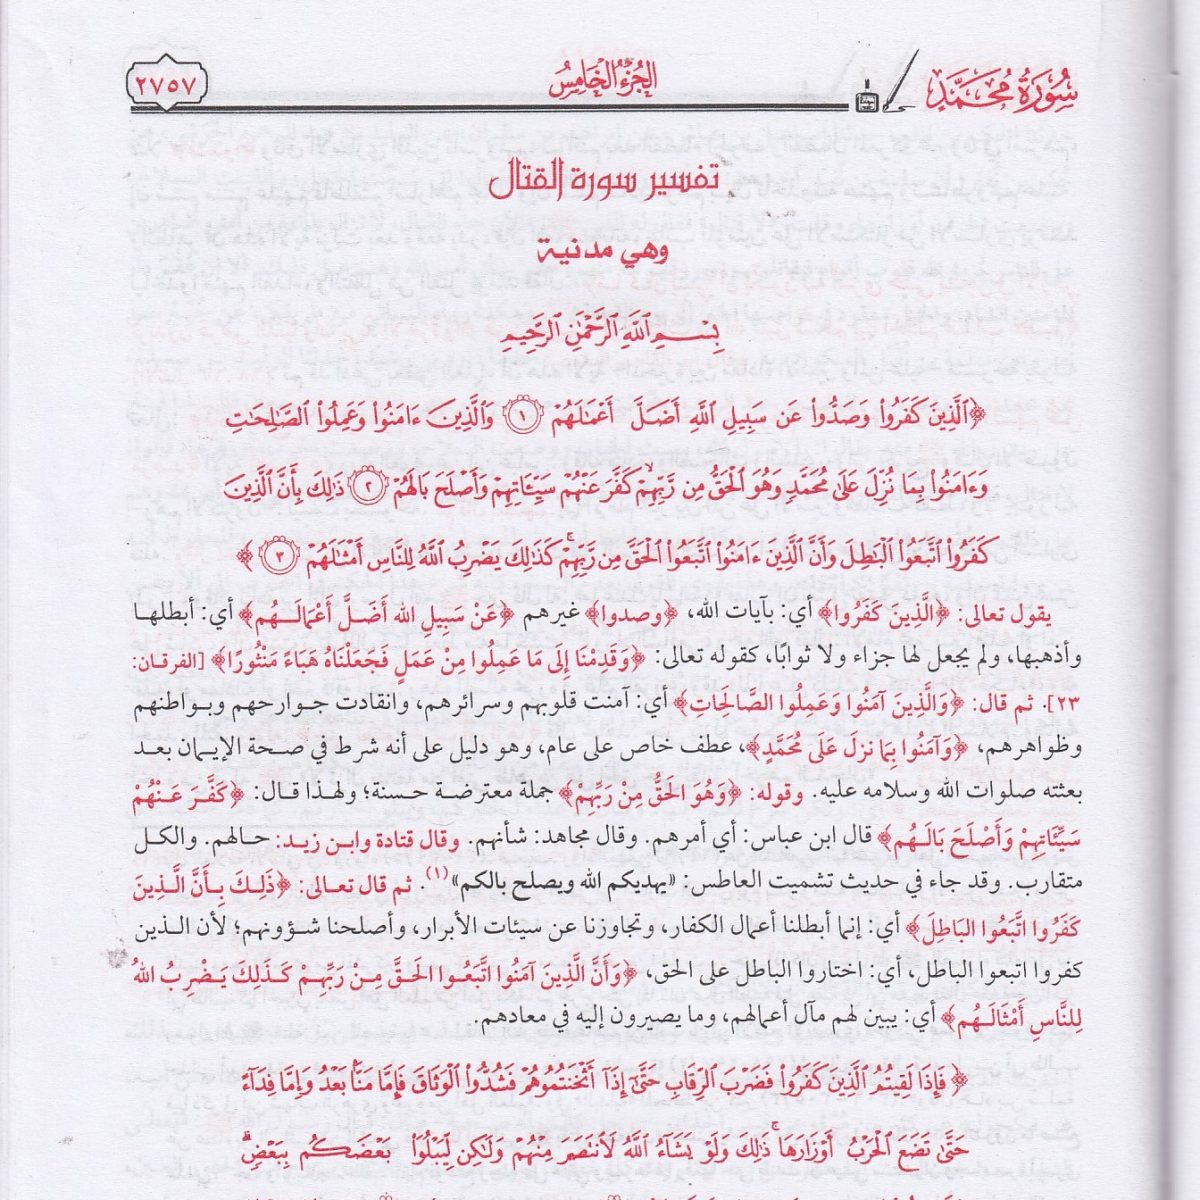 سُورَةُ مُحَمَّدٍ
الجُزْءُ الخَامِسُ
٢٧٥٧
تفسير سورة القتال
وهي مدنية
بِسْمِ ٱللَّهِ ٱلرَّحْمَٰنِ ٱلرَّحِيمِ
﴿ٱلَّذِينَ كَفَرُوا۟ وَصَدُّوا۟ عَن سَبِيلِ ٱللَّهِ أَضَلَّ أَعْمَٰلَهُمْ ١ وَٱلَّذِينَ ءَامَنُوا۟ وَعَمِلُوا۟ ٱلصَّٰلِحَٰتِ
وَءَامَنُوا۟ بِمَا نُزِّلَ عَلَىٰ مُحَمَّدٍ وَهُوَ ٱلْحَقُّ مِن رَّبِّهِمْ ۙ كَفَّرَ عَنْهُمْ سَيِّـَٔاتِهِمْ وَأَصْلَحَ بَالَهُمْ ٢ ذَٰلِكَ بِأَنَّ ٱلَّذِينَ
كَفَرُوا۟ ٱتَّبَعُوا۟ ٱلْبَٰطِلَ وَأَنَّ ٱلَّذِينَ ءَامَنُوا۟ ٱتَّبَعُوا۟ ٱلْحَقَّ مِن رَّبِّهِمْ ۚ كَذَٰلِكَ يَضْرِبُ ٱللَّهُ لِلنَّاسِ أَمْثَٰلَهُمْ ٣﴾
يقول تعالى: ﴿الَّذِينَ كَفَرُوا﴾ أي: بآيات الله، ﴿وصدوا﴾ غيرهم ﴿عَنْ سَبِيلِ الله أَضَلَّ أَعْمَالَـهُم﴾ أي: أبطلها
وأذهبها، ولم يجعل لها جزاء ولا ثوابًا، كقوله تعالى: ﴿وَقَدِمْنَا إِلَى مَا عَمِلُوا مِنْ عَمَلٍ فَجَعَلْنَاهُ هَبَاءً مَنْثُورًا﴾ [الفرقان:
٢٣]. ثم قال: ﴿وَالَّذِينَ آمَنُوا وَعَمِلُوا الصَّالِحَاتِ﴾ أي: آمنت قلوبهم وسرائرهم، وانقادت جوارحهم وبواطنهم
وظواهرهم، ﴿وَآمَنُوا بِمَا نزلَ عَلَى مُحَمَّدٍ﴾، عطف خاص على عام، وهو دليل على أنه شرط في صحة الإيمان بعد
بعثته صلوات الله وسلامه عليه. وقوله: ﴿وَهُوَ الحَقُّ مِنْ رَبِّهِمْ﴾ جملة معترضة حسنة؛ ولهذا قال: ﴿كَفَّرَ عَنْهُمْ
سَيِّئَاتِهِمْ وَأَصْلَحَ بَالَـهُم﴾ قال ابن عباس: أي أمرهم. وقال مجاهد: شأنهم. وقال قتادة وابن زيد: حالهم. والكل
متقارب. وقد جاء في حديث تشميت العاطس: «يهديكم الله ويصلح بالكم»(١). ثم قال تعالى: ﴿ذَلِكَ بِأَنَّ الَّذِينَ
كَفَرُوا اتَّبَعُوا البَاطِلَ﴾ أي: إنما أبطلنا أعمال الكفار، وتجاوزنا عن سيئات الأبرار، وأصلحنا شؤونهم؛ لأن الذين
كفروا اتبعوا الباطل، أي: اختاروا الباطل على الحق، ﴿وَأَنَّ الَّذِينَ آمَنُوا اتَّبَعُوا الحَقَّ مِنْ رَبِّهِمْ كَذَلِكَ يَضْرِبُ اللهُ
لِلنَّاسِ أَمْثَالَـهُم﴾ أي: يبين لهم مآل أعمالهم، وما يصيرون إليه في معادهم.
﴿فَإِذَا لَقِيتُمُ ٱلَّذِينَ كَفَرُوا۟ فَضَرْبَ ٱلرِّقَابِ حَتَّىٰٓ إِذَآ أَثْخَنتُمُوهُمْ فَشُدُّوا۟ ٱلْوَثَاقَ فَإِمَّا مَنًّۢا بَعْدُ وَإِمَّا فِدَآءً
حَتَّىٰ تَضَعَ ٱلْحَرْبُ أَوْزَارَهَا ۚ ذَٰلِكَ وَلَوْ يَشَآءُ ٱللَّهُ لَٱنتَصَرَ مِنْهُمْ وَلَٰكِن لِّيَبْلُوَا۟ بَعْضَكُم بِبَعْضٍ ۗ